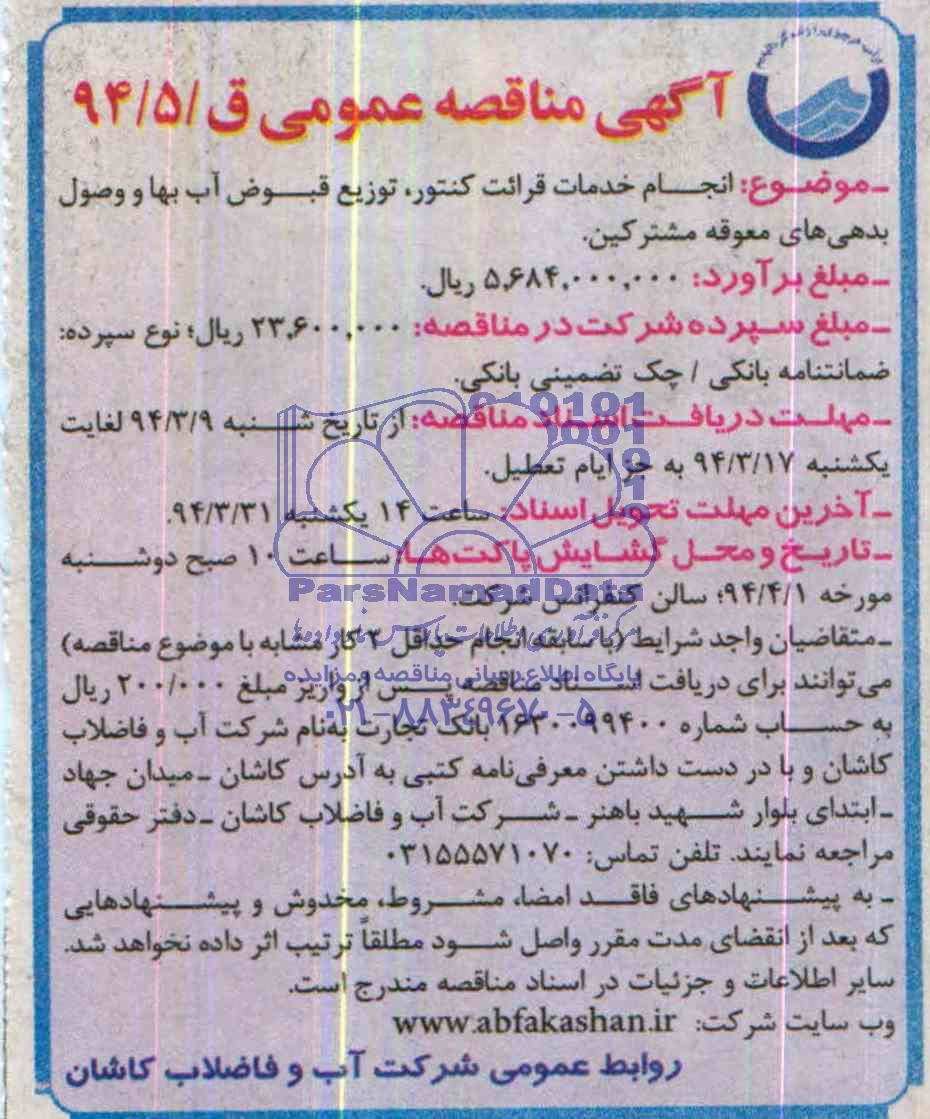 آگهی مناقصه عمومی ق/۹۴/۵
ـ موضوع: انجام خدمات قرائت کنتور، توزیع قبوض آب بها و وصول
بدهی‌های معوقه مشترکین.
ـ مبلغ برآورد: ۵,۶۸۴,۰۰۰,۰۰۰ ریال.
ـ مبلغ سپرده شرکت در مناقصه: ۲۳,۶۰۰,۰۰۰ ریال؛ نوع سپرده:
ضمانتنامه بانکی / چک تضمینی بانکی.
ـ مهلت دریافت اسناد مناقصه: از تاریخ شنبه ۹۴/۳/۹ لغایت
یکشنبه ۹۴/۳/۱۷ به جز ایام تعطیل.
ـ آخرین مهلت تحویل اسناد: ساعت ۱۴ یکشنبه ۹۴/۳/۳۱.
ـ تاریخ و محل گشایش پاکت‌ها: ساعت ۱۰ صبح دوشنبه
مورخه ۹۴/۴/۱؛ سالن کنفرانس شرکت.
ParsNamadData
ـ متقاضیان واجد شرایط (با سابقه انجام حداقل ۲ کار مشابه با موضوع مناقصه)
پایگاه اطلاع رسانی مناقصه و مزایده
می‌توانند برای دریافت اسناد مناقصه پس از واریز مبلغ ۲۰۰/۰۰۰ ریال
۰۲۱-۸۸۳۴۹۶۷۰-۵
به حساب شماره ۱۶۳۰۰۹۹۴۰۰ بانک تجارت به‌نام شرکت آب و فاضلاب
کاشان و با در دست داشتن معرفی‌نامه کتبی به آدرس کاشان ـ میدان جهاد
ـ ابتدای بلوار شهید باهنر ـ شرکت آب و فاضلاب کاشان ـ دفتر حقوقی
مراجعه نمایند. تلفن تماس: ۰۳۱۵۵۵۷۱۰۷۰
ـ به پیشنهادهای فاقد امضا، مشروط، مخدوش و پیشنهادهایی
که بعد از انقضای مدت مقرر واصل شود مطلقاً ترتیب اثر داده نخواهد شد.
سایر اطلاعات و جزئیات در اسناد مناقصه مندرج است.
وب سایت شرکت: www.abfakashan.ir
روابط عمومی شرکت آب و فاضلاب کاشان